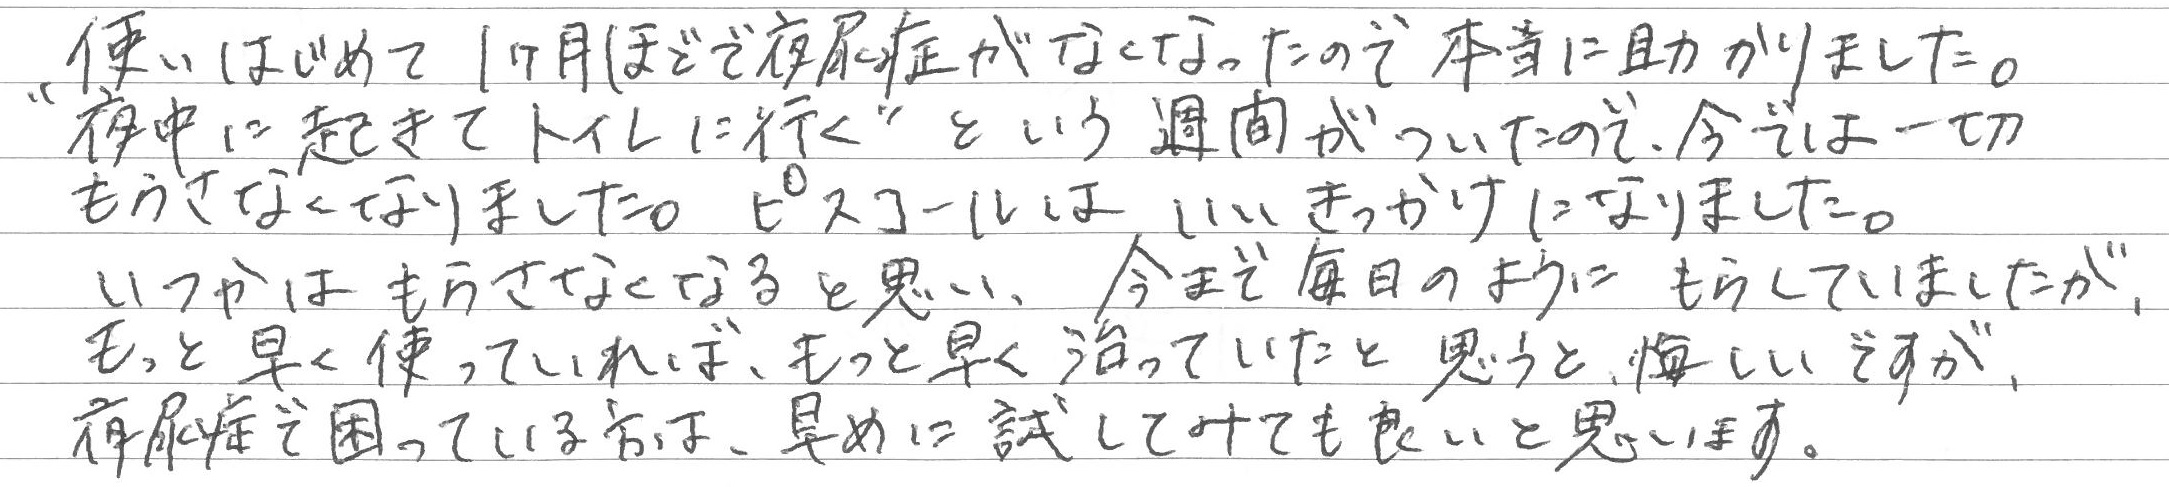 使いはじめて1ヶ月ほどで夜尿症がなくなったので本当に助かりました。
"夜中に起きてトイレに行く"という週間がついたので、今では一切
もらさなくなりました。ピスコールはいいきっかけになりました。
いつかはもらさなくなると思い、今まで毎日のようにもらしていましたが、
もっと早く使っていれば、もっと早く治っていたと思うと、悔しいですが、
夜尿症で困っている方は、早めに試してみても良いと思います。